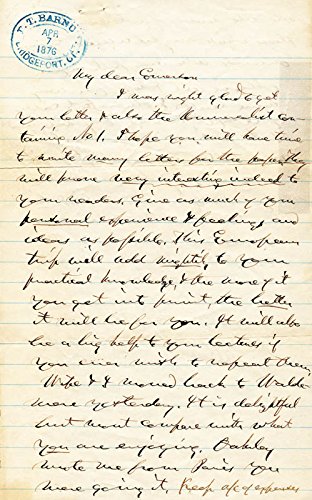 P. T. BARNUM
APR
7
1876
BRIDGEPORT, CT.
My dear Emerson
I was right glad to get
your letter & also the Universalist con-
taining No 1. I hope you will have time
to write many letters for the paper. They
will prove very interesting indeed to
your readers. Give as much of your
personal experience & feelings and
ideas as possible. This European
trip will add mightily to your
practical knowledge, & the more of it
you get into print, the better
it will be for you. It will also
be a big help to your lectures if
you ever wish to repeat them.
Wife & I moved back to Walde-
mere yesterday. It is delightful
but wont compare with what
you are enjoying. Oakley
wrote me from Paris you
were going it, Keep a/c of expenses